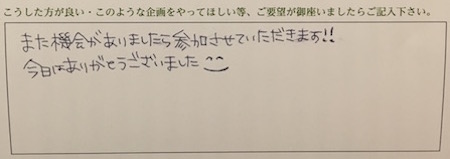 こうした方が良い・このような企画をやってほしい等、ご要望が御座いましたらご記入下さい。
また機会がありましたら参加させていただきます!!
今日はありがとうございました